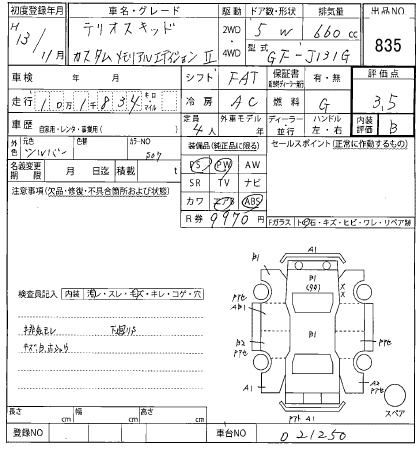 初度登録年月 車名・グレード 駆動 ドア数・形状 排気量 出品NO
H 13/11月 テリオスキッド 2WD 5W 660cc 835
カスタムメモリアルエディションⅡ 4WD 型式 GF-J131G
車検 年 月 シフト FAT 保証書 有・無 評価点
走行 10万1千834 キロ マイル 冷房 AC 燃料 G 3.5
車歴 自家用・レンタ・事業用( ) 定員 4人 外車モデル 年 ディーラー・並行 ハンドル 左・右 内装評価 B
外色 元色 シルバー 色替 カラーNO S07 装備品(純正品に限る) セールスポイント(正常に作動するもの)
名義変更期限 月 日迄 積載 t PS PW AW
注意事項(欠品・修復・不具合箇所および状態) SR TV ナビ
カワ エアB ABS
R券 9970円 Fガラス トビ石・キズ・ヒビ・ワレ・リペア跡
A1
B1 B1
アセ
検査員記入 内装 汚レ・スレ・モズ・キレ・コゲ・穴 AB1 アセ
排気モレ 下廻りサ B2 B1
アセ
A1 A2
アセ
アト A1 スペア
長さ cm 幅 cm 高さ cm
登録NO 車台NO 021250